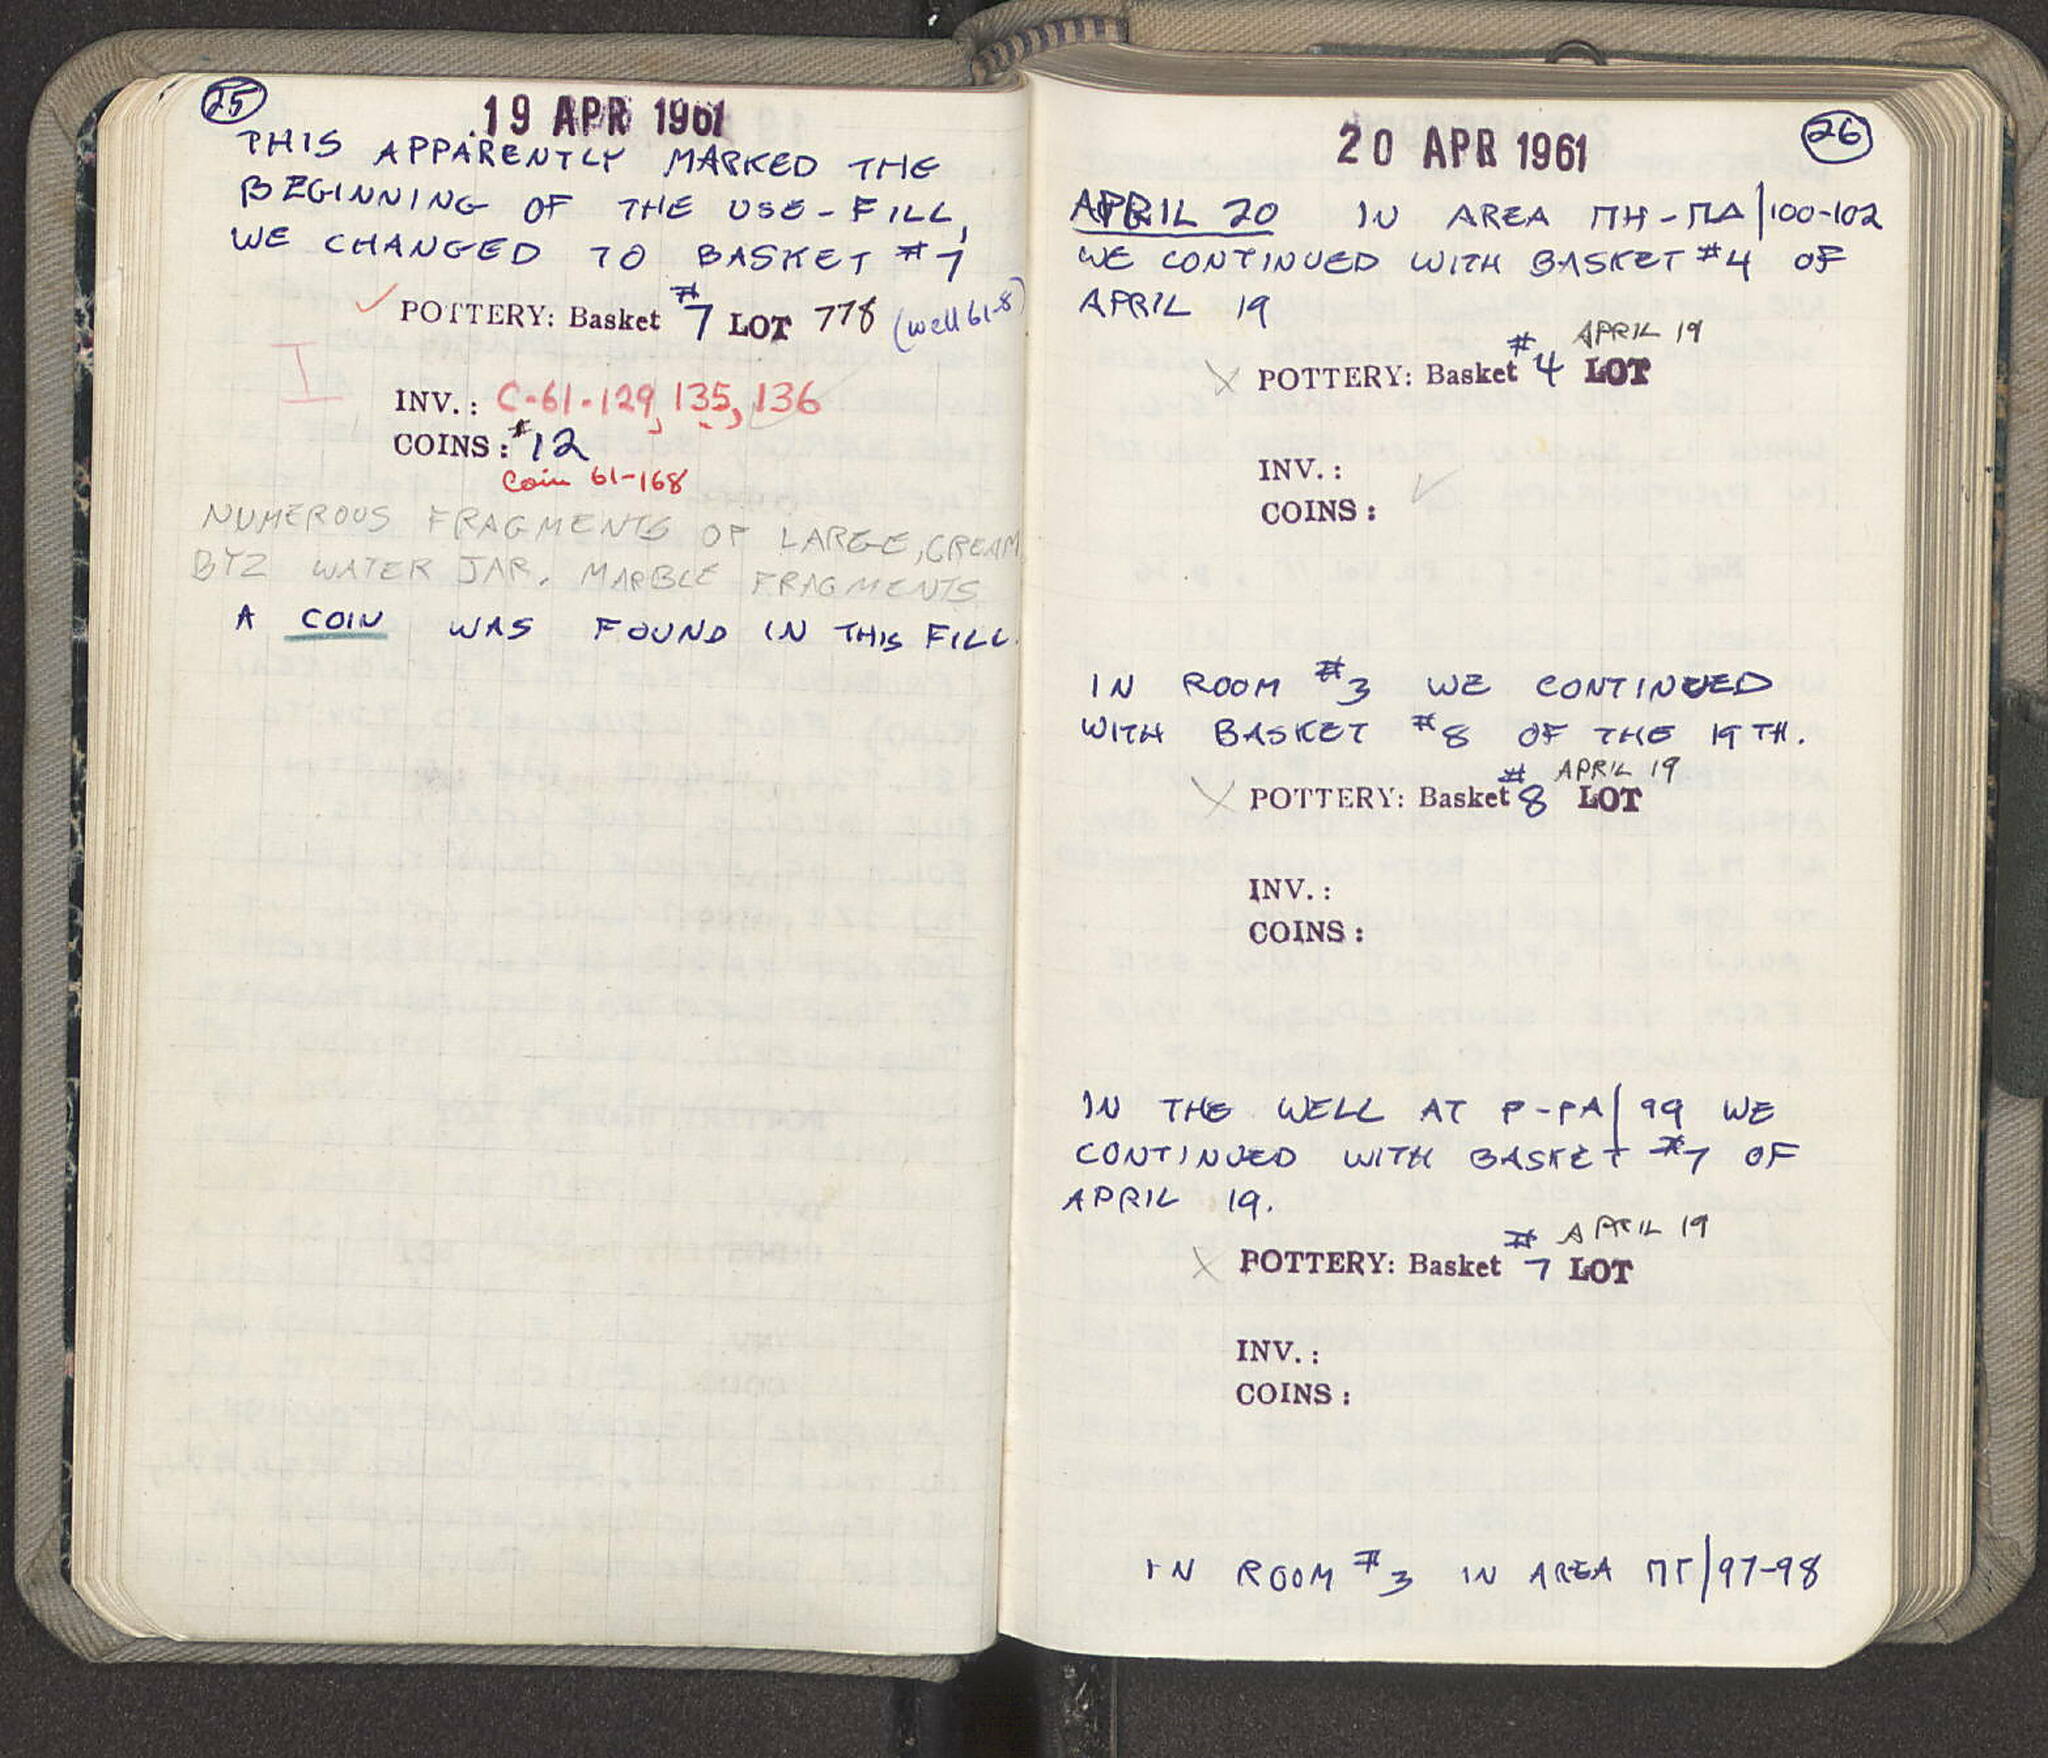 25
19 APR 1961
THIS APPARENTLY MARKED THE
BEGINNING OF THE USE-FILL,
WE CHANGED TO BASKET #7
POTTERY: Basket #7 LOT 778 (well 61-8)
I
INV.: C-61-129, 135, 136
COINS: #12
Coin 61-168
NUMEROUS FRAGMENTS OF LARGE, CREAM
BYZ WATER JAR. MARBLE FRAGMENTS
A COIN WAS FOUND IN THIS FILL.
26
20 APR 1961
APRIL 20 IN AREA ΠΗ-ΠΔ|100-102
WE CONTINUED WITH BASKET #4 OF
APRIL 19
APRIL 19
POTTERY: Basket #4 LOT
INV.:
COINS:
IN ROOM #3 WE CONTINUED
WITH BASKET #8 OF THE 19TH.
APRIL 19
POTTERY: Basket #8 LOT
INV.:
COINS:
IN THE WELL AT P-PA|99 WE
CONTINUED WITH BASKET #7 OF
APRIL 19.
APRIL 19
POTTERY: Basket #7 LOT
INV.:
COINS:
IN ROOM #3 IN AREA ΠΓ|97-98